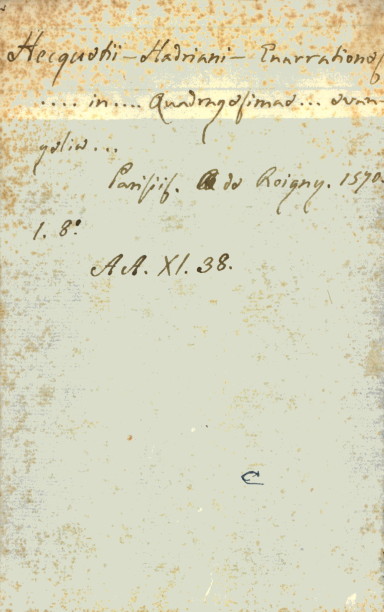 Hecquetii – Hadriani – Enarrationes
.... in .... Quadragesimae ... evan-
gelia ...
Parisiis. de Roigny. 1570.
1. 8°
AA. XI. 38.